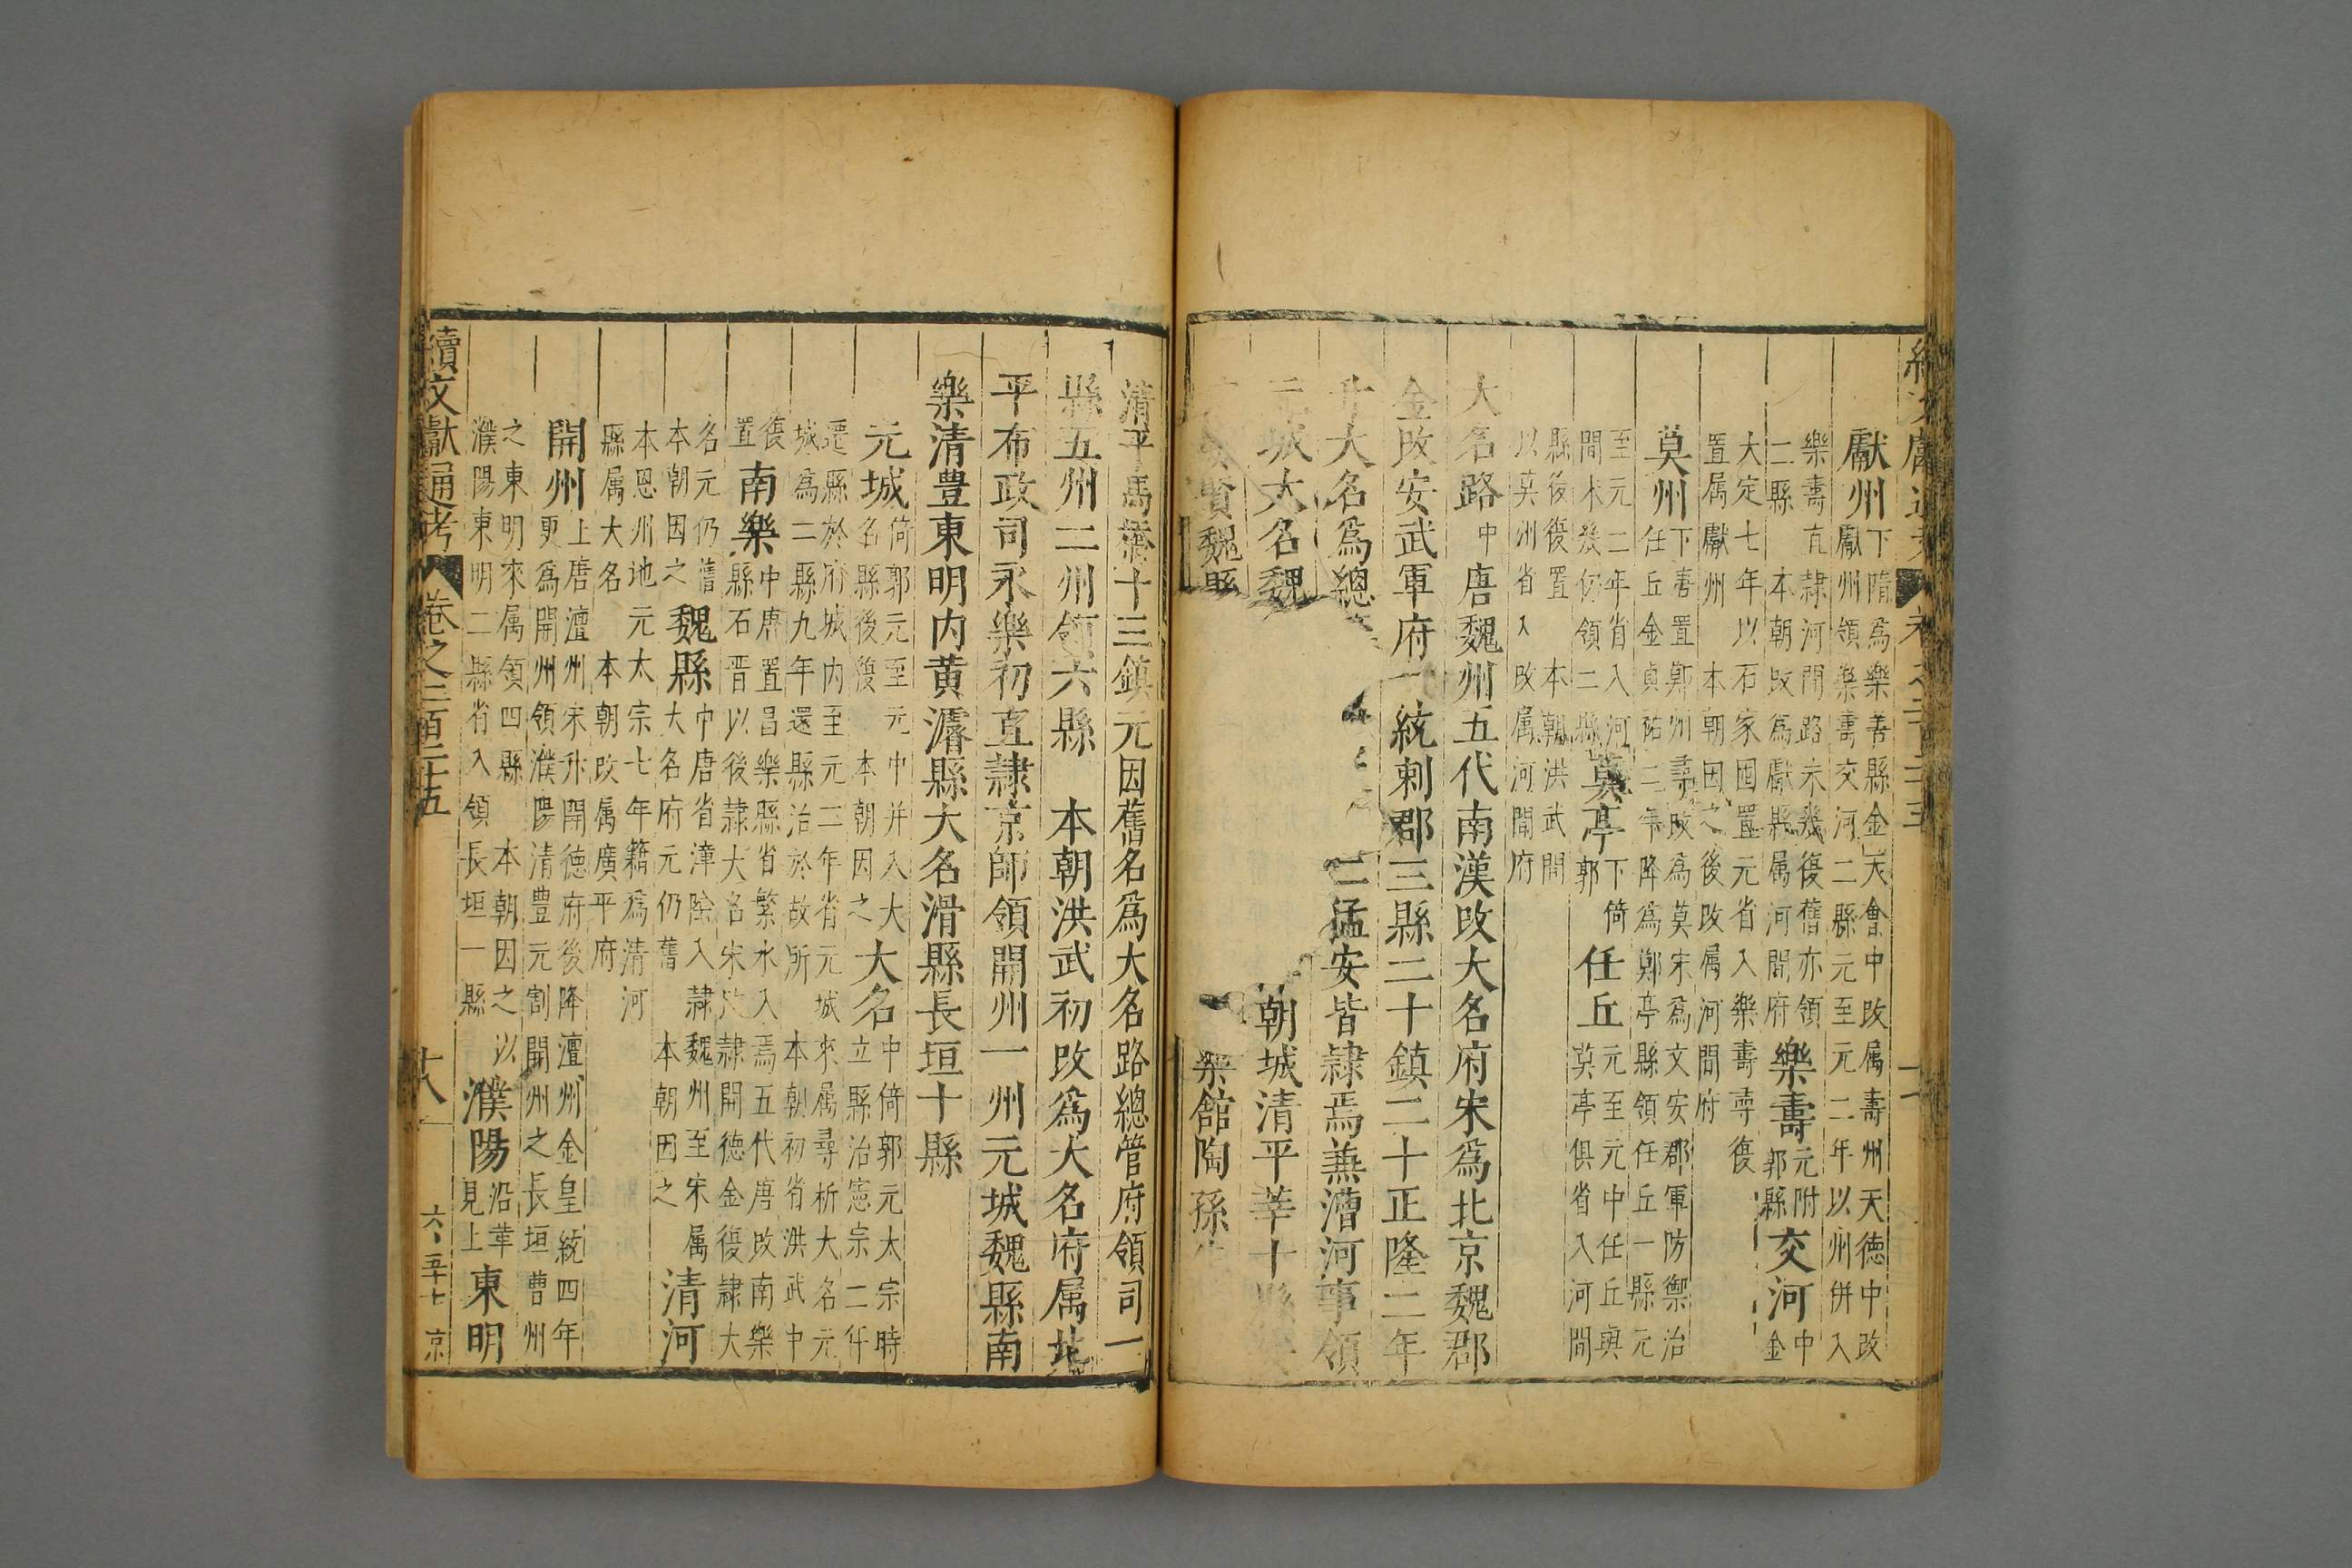 獻州下隋爲樂善縣金天會中改属壽州天德中改
獻州領樂壽交河二縣元至元二年以州併入
樂壽直隷河間路未幾復舊亦領
二縣 本朝改爲獻縣属河間府樂壽元附
郭縣交河中
金
大定七年以石家圈置元省入樂壽尋復
置属獻州 本朝因之後改属河間府
莫州下唐置鄚州尋改爲莫宋爲文安郡軍防禦治
任丘金貞祐二年降爲鄚亭縣領任丘一縣元
至元二年省入河
間未幾仍領二縣莫亭下倚
郭任丘元至元中任丘與
莫亭俱省入河間
縣後復置 本朝洪武間
以莫州省入改属河間府
大名路中唐魏州五代南漢改大名府宋爲北京魏郡
金改安武軍府一統刺郡三縣二十鎮二十正隆二年
升大名爲總 二猛安皆隷焉兼漕河事領
元城大名魏 朝城清平莘十縣
賢魏縣 館陶孫
清平馬橋十三鎮元因舊名爲大名路總管府領司一
縣五州二州領六縣 本朝洪武初改爲大名府属北
平布政司永樂初直隷京師領開州一州元城魏縣南
樂清豊東明内黄濬縣大名滑縣長垣十縣
元城倚郭元至元中并入大
名縣後復 本朝因之大名中倚郭元太宗時
立縣治憲宗二年
遷縣於府城内至元二年省元城來属尋析大名元
城爲二縣九年還縣治於故所 本朝初省洪武中
復
置南樂中唐置昌樂縣省繁水入焉五代唐改南樂
縣石晋以後隷大名宋改隷開德金復隷大
名元仍舊
本朝因之魏縣中唐省漳陰入隷魏州至宋属
大名府元仍舊 本朝因之清河
本恩州地元太宗七年籍爲清河
縣属大名 本朝改属廣平府
開州上唐澶州宋升開德府後降澶州金皇統四年
更爲開州領濮陽清豊元割開州之長垣曹州
之東明來属領四縣 本朝因之以
濮陽東明二縣省入領長垣一縣濮陽沿革
見上東明
續文獻通考 卷之二百二十五 十八 六五十七 京